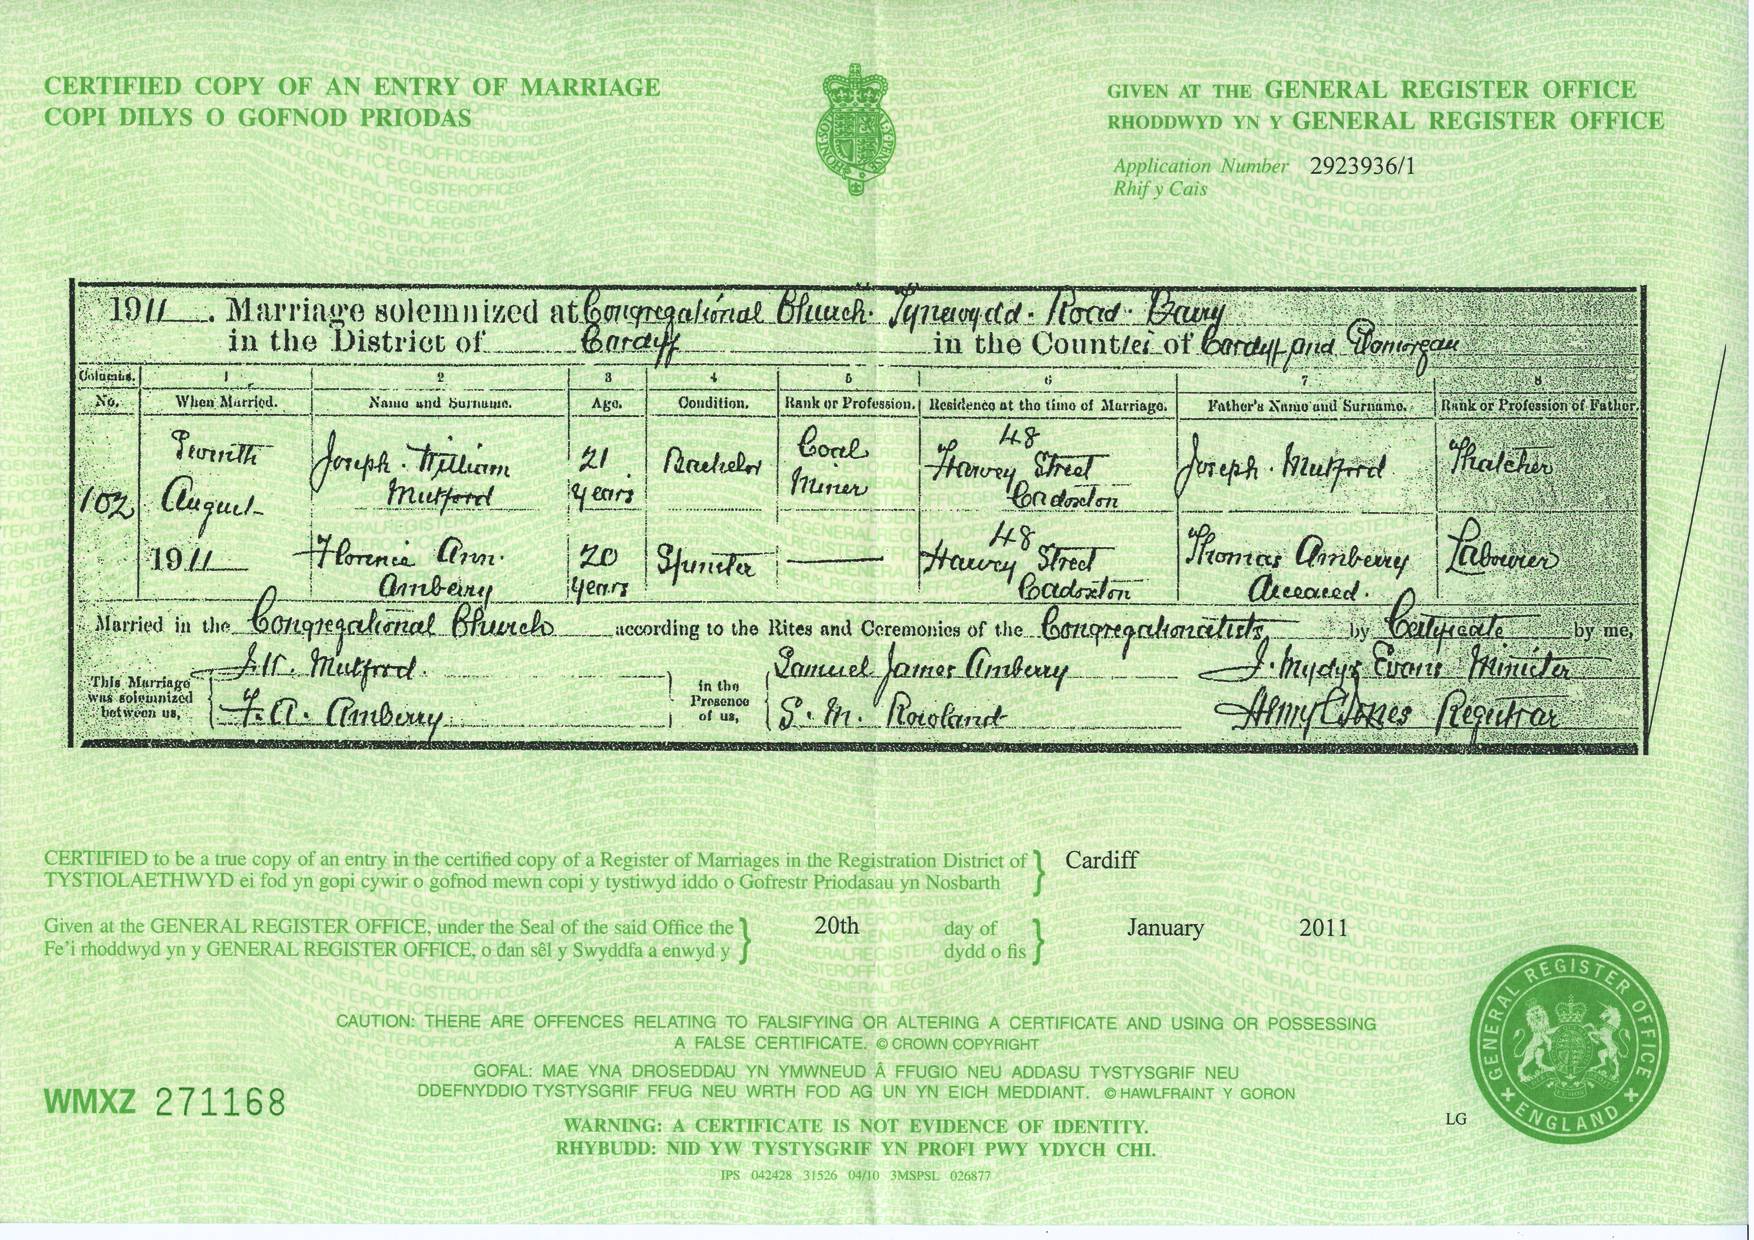 CERTIFIED COPY OF AN ENTRY OF MARRIAGE
COPI DILYS O GOFNOD PRIODAS
GIVEN AT THE GENERAL REGISTER OFFICE
RHODDWYD YN Y GENERAL REGISTER OFFICE
Application Number 2923936/1
Rhif y Cais
1911. Marriage solemnized at Congregational Church Tynewydd Road Barry
in the District of Cardiff in the Counties of Cardiff and Glamorgan
Columns. 1 2 3 4 5 6 7 8
No. When Married. Name and Surname. Age. Condition. Rank or Profession. Residence at the time of Marriage. Father's Name and Surname. Rank or Profession of Father.
102
August
1911
Joseph William Mutford 21 years Bachelor Coal Miner 48 Harvey Street Cadoxton Joseph Mutford Thatcher
Florence Ann Amberry 20 years Spinster 48 Harvey Street Cadoxton Thomas Amberry Deceased. Labourer
Married in the Congregational Church according to the Rites and Ceremonies of the Congregationalists by Certificate by me,
This Marriage was solemnized between us,
J. W. Mutford
F. A. Amberry
in the Presence of us,
Samuel James Amberry
S. M. Rowland
Evans Minister
Jones Registrar
CERTIFIED to be a true copy of an entry in the certified copy of a Register of Marriages in the Registration District of Cardiff
TYSTIOLAETHWYD ei fod yn gopi cywir o gofnod mewn copi y tystiwyd iddo o Gofrestr Priodasau yn Nosbarth
Given at the GENERAL REGISTER OFFICE, under the Seal of the said Office the 20th day of January 2011
Fe'i rhoddwyd yn y GENERAL REGISTER OFFICE, o dan sêl y Swyddfa a enwyd y dydd o fis
CAUTION: THERE ARE OFFENCES RELATING TO FALSIFYING OR ALTERING A CERTIFICATE AND USING OR POSSESSING
A FALSE CERTIFICATE. © CROWN COPYRIGHT
GOFAL: MAE YNA DROSEDDAU YN YMWNEUD Â FFUGIO NEU ADDASU TYSTYSGRIF NEU
DDEFNYDDIO TYSTYSGRIF FFUG NEU WRTH FOD AG UN YN EICH MEDDIANT. © HAWLFRAINT Y GORON
WARNING: A CERTIFICATE IS NOT EVIDENCE OF IDENTITY.
RHYBUDD: NID YW TYSTYSGRIF YN PROFI PWY YDYCH CHI.
IPS 042428 31526 04/10 3MSPSL 026877
WMXZ 271168
LG
GENERAL REGISTER OFFICE
ENGLAND